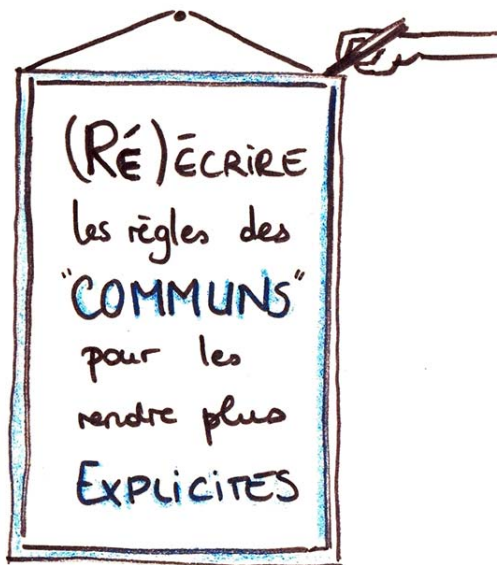 (RÉ)ÉCRIRE
les règles des
"COMMUNS"
pour les
rendre plus
EXPLICITES